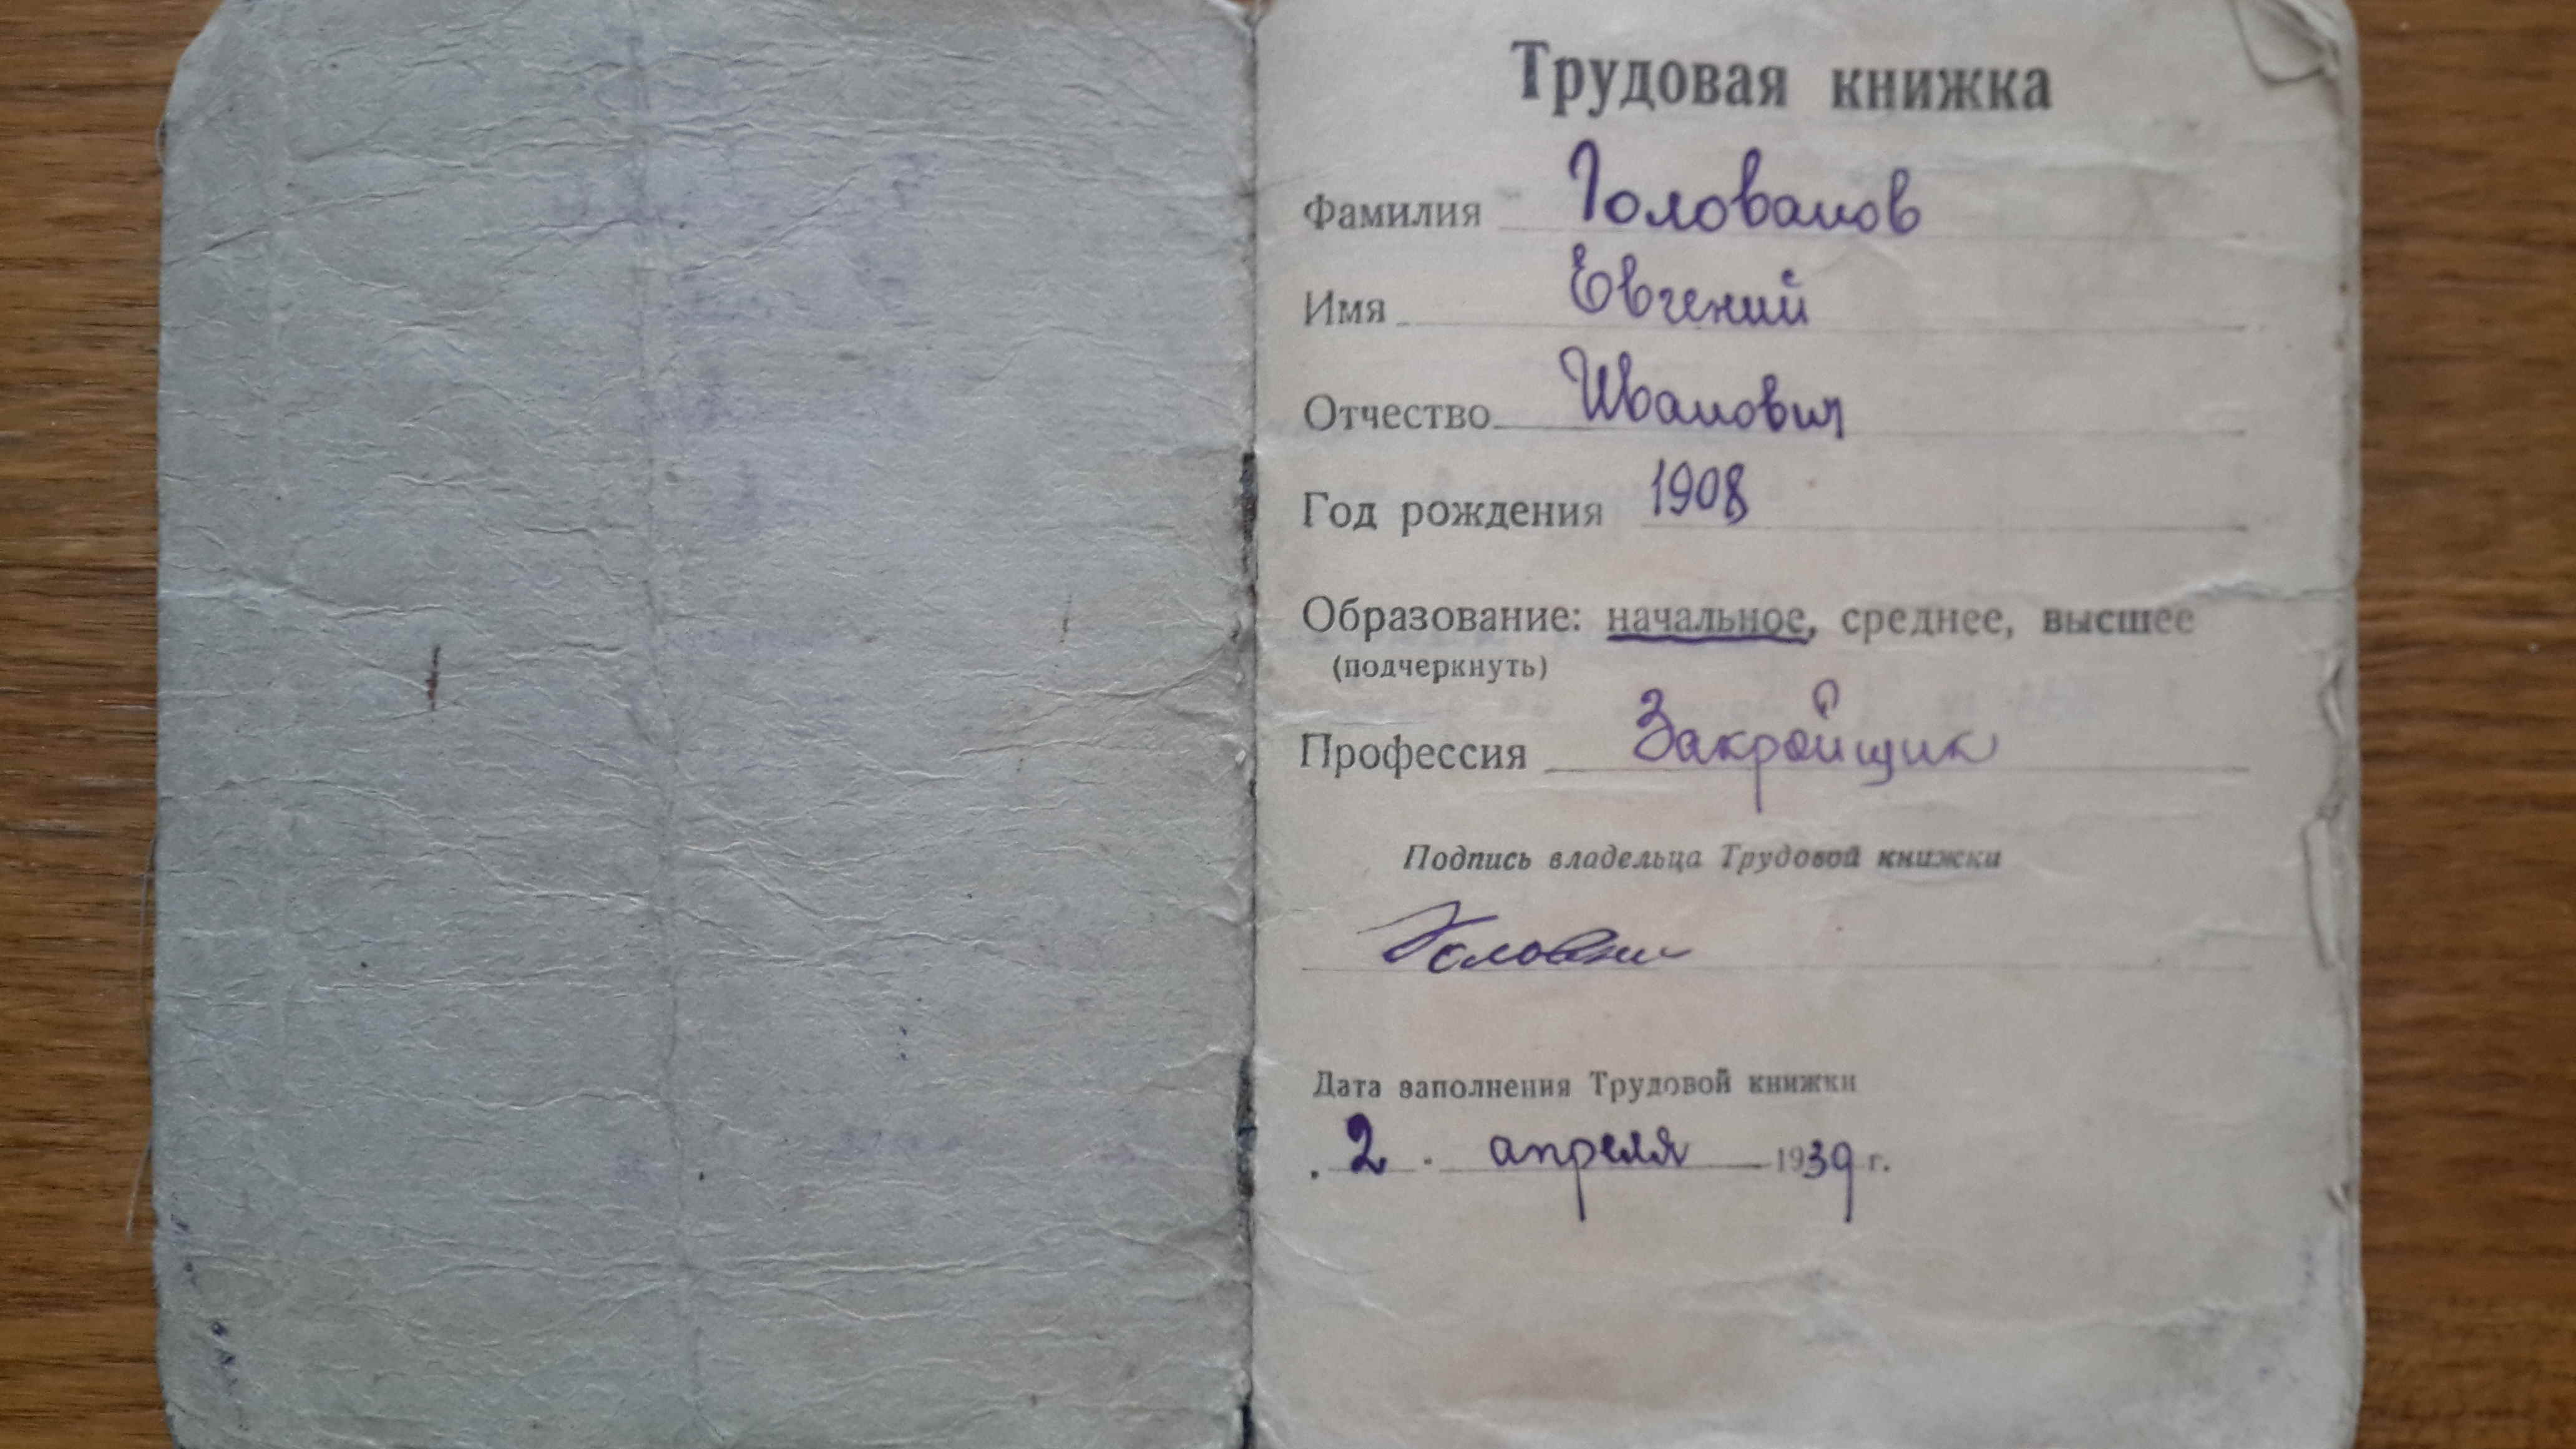 Трудовая книжка
Фамилия Голованов
Имя Евгений
Отчество Иванович
Год рождения 1908
Образование: начальное, среднее, высшее
(подчеркнуть)
Профессия Закройщик
Подпись владельца Трудовой книжки
Дата заполнения Трудовой книжки
2 апреля 1939 г.